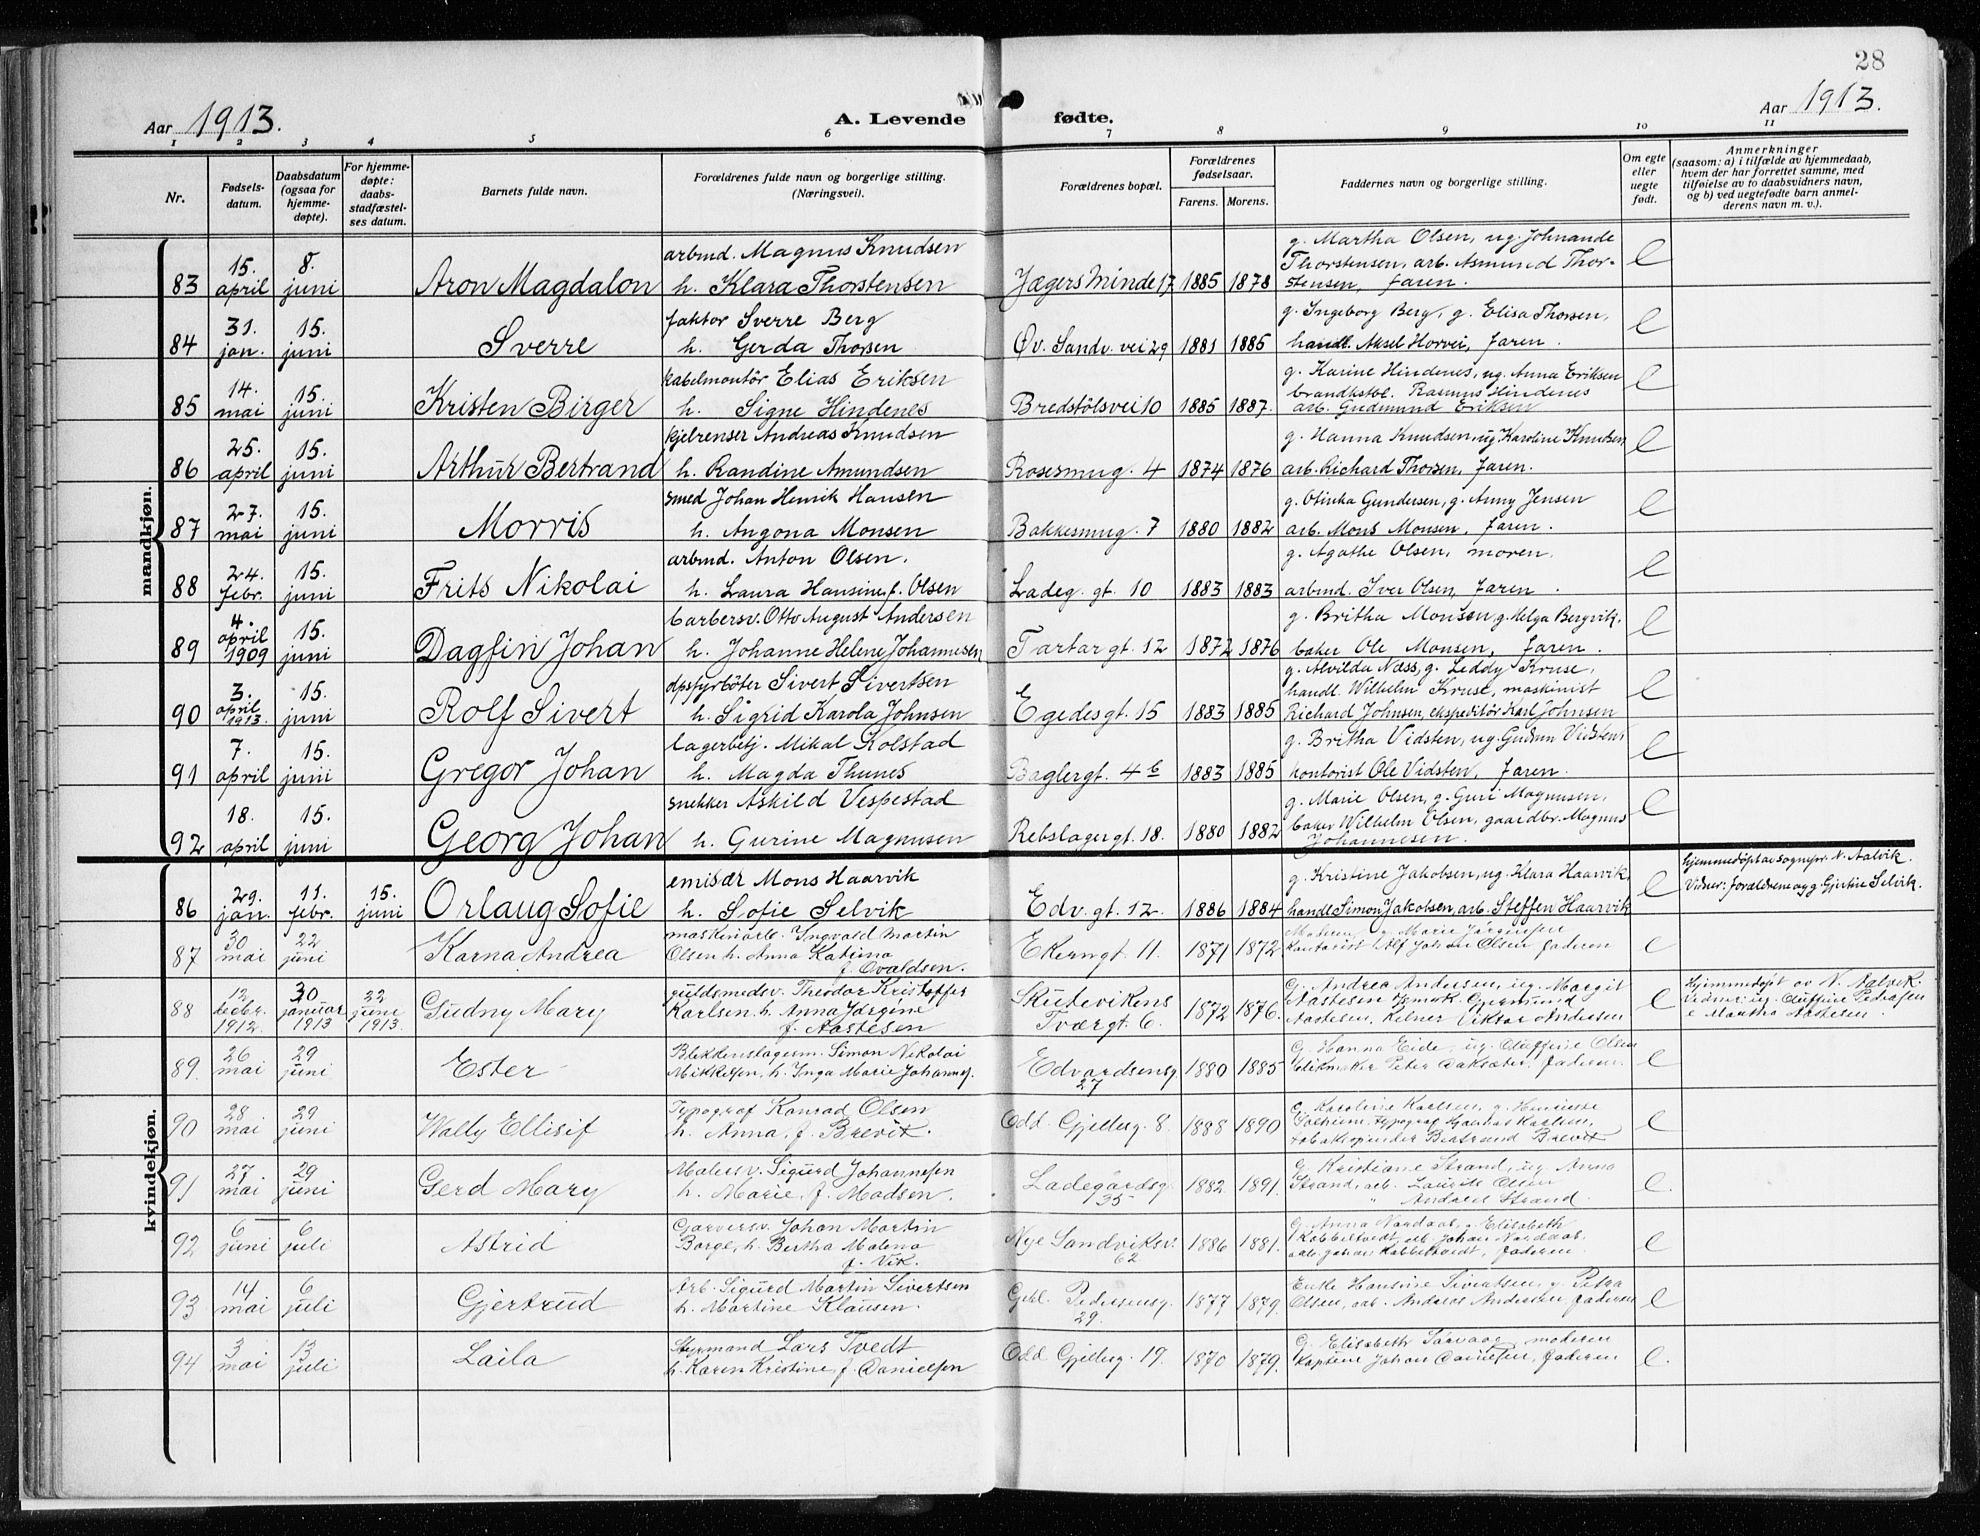 28
Aar 1913.
A. Levende fødte.
Aar 1913.
1 2 3 4 5 6 7 8 9 10 11
Nr.
Fødsels-
datum.
Daabsdatum
(ogsaa for
hjemme-
døpte).
For hjemme-
døpte:
daabs-
stadfæstel-
ses datum.
Barnets fulde navn.
Forældrenes fulde navn og borgerlige stilling.
(Næringsvei).
Forældrenes bopæl.
Forældrenes
fødselsaar.
Farens. Morens.
Faddernes navn og borgerlige stilling.
Om egte
eller
uegte
født.
Anmerkninger
(saasom: a) i tilfælde av hjemmedaab,
hvem der har forrettet samme, med
tilføielse av to daabsvidners navn,
og b) ved uegtefødte barn anmel-
derens navn m. v.).
mandkjøn.
83 15. april 8. juni Aron Magdalon
arbmd. Magnus Knudsen
h. Klara Thorstensen
Jægers Minde 17 1885 1878
g. Martha Olsen, ug. Johnande
Thorstensen, arb. Asmund Thor-
stensen, faren. e
84 31. jan. 15. juni Sverre
faktor Sverre Berg
h. Gerda Thorsen
Øv. Sandv. vei 29 1881 1885
g. Ingeborg Berg, g. Elisa Thorsen,
handl. Aksel Horvei, faren. e
85 14. mai 15. juni Kristen Birger
kabelmontör Elias Eriksen
h. Signe Hindenes
Bredstölsvei 10 1885 1887.
g. Karine Hindenes, ug. Anna Eriksen
brandkstbl. Rasmus Hindenes
arb. Gudmund Eriksen e
86 25. april 15. juni Arthur Bertrand
kjelrenser Andreas Knudsen
h. Randine Amundsen
Rosesmug. 4 1874 1876
g. Hanna Knudsen, ug. Karoline Knudsen
arb. Richard Thorsen, faren. e
87 27. mai 15. juni Morris
smed Johan Henrik Hansen
h. Angona Monsen
Bakkesmug. 7 1880 1882
g. Otinka Gundersen, g. Anny Jensen
arb. Mons Monsen, faren. e
88 24. febr. 15. juni Frits Nikolai
arbmd. Anton Olsen.
h. Laura Hansine, f. Olsen
Ladeg. gt. 10 1883 1883
g. Agathe Olsen, moren.
arbmd. Iver Olsen, faren. e
89 4. april 1909 15. juni Dagfin Johan
barbersv. Otto August Andersen
h. Johanne Helene Johannesen
Tartargt. 12 1872 1876
g. Britha Monsen, g. Helga Bergvik.
baker Ole Monsen, faren. e
90 3. april 1913. 15. juni Rolf Sivert
dpsfyrböter Sivert Sivertsen
h. Sigrid Karola Johnsen
Egedesgt. 15 1883 1885
g. Alvilda Næss, g. Leddy Kruse,
handl. Wilhelm Kruse, maskinist
Richard Johnsen, ekspeditör Karl Johnsen e
91 7. april 15. juni Gregor Johan
lagerbetj. Mikal Kolstad
h. Magda Thunes
Baglergt. 4 b 1883 1885
g. Britha Vidsten, ug. Gudrun Vidsten,
kontorist Ole Vidsten, faren. e
92 18. april 15. juni Georg Johan
snekker Askild Vespestad
h. Gurine Magnusen
Rebslagergt. 18. 1880 1882
g. Marie Olsen, g. Guri Magnusen,
baker Wilhelm Olsen, gaardbr. Magnus
Johannesen. e
kvindekjøn.
86 29. jan. 11. febr. 15. juni Orlaug Sofie
emisær Mons Haarvik
h. Sofie Selvik
Edv. gt. 12. 1886 1884
g. Kristine Jakobsen, ug. Klara Haarvik,
handl. Simon Jakobsen, arb. Steffen Haarvik e
hjemmedøpt av sognepr. N. Aalvik.
Vidner: forældrene og g. Gjertine Selvik.
87 30 mai 22 juni Karna Andrea
maskinarb. Ingvald Martin
Olsen h. Anna Katrina
f. Evaldsen.
Ekerngt. 11. 1871 1872
Moderen, g. Marie Jörgensen
Kontorist Alf Johan Olsen faderen e
88 12 decbr. 1912. 30 januar 1913 22 juni 1913. Gudny Mary
guldsmedsv. Theodor Kristoffer
Karlsen h. Anna Jörgine
f. Aastesen
Skutevikens
Tværgt. 6. 1872 1876.
G. Andrea Andersen, ug. Margit
Aastesen Gjermund
Aastesen, Kelner Viktor Andersen e
Hjemmedøpt av N. Aalvik.
Petersen
e Martha Aastesen.
89. 26 mai 29 juni Ester
Blikkenslagerm. Simon Nikolai
Mikkelsen, h. Inga Marie Johannes.
Edvardsensg.
27 1880 1885
G. Hanna Eide, ug. Oluffine Olsen
Peter faderen. e
90 28 mai 29 juni Wally Ellisif
Typograf Konrad Olsen
h. Anna, f. Brevik.
Odd Gjellesg. 8. 1888 1890
G. Karoline Karlsen, g. Henriette
Solheim. Typograf Karlsen,
tobakspinder Bertrand Brevik e
91 27 mai 29 juni Gerd Mary
Malersv. Sigurd Johannesen
h. Marie, f. Madsen.
Ladegårdsg.
35 1882. 1891.
G. Kristiane Strand, ug. Anna
Strand, arb. Laurits Olsen
" Andreas Strand. e.
92 6 juni 6 juli Astrid
Garversv. Johan Martin
Borge, h. Bertha Malena
f. Vik.
Nye Sandviksv.
62 1886 1881.
G. Anna Nordaas, g. Elisabeth
Kobbeltvedt, arb. Johan Nordaas,
arb. Johan Kobbeltvedt, faderen e
93 14 mai 6 juli Gjertrud
Arb. Sigurd Martin Sivertsen
h. Martine Klausen.
Gehl. Pedersensg.
29. 1877 1879.
Enke Hansine Sivertsen, g. Petra
Olsen, arb. Andreas Andersen faderen e
94 3 mai 13 juli Laila
Styrmand Lars Tvedt
h. Karen Kristine, f. Danielsen
Odd Gjellesg. 19. 1870 1879.
G. Elisabeth moderen
Kaptein Johan Danielsen, faderen. e.